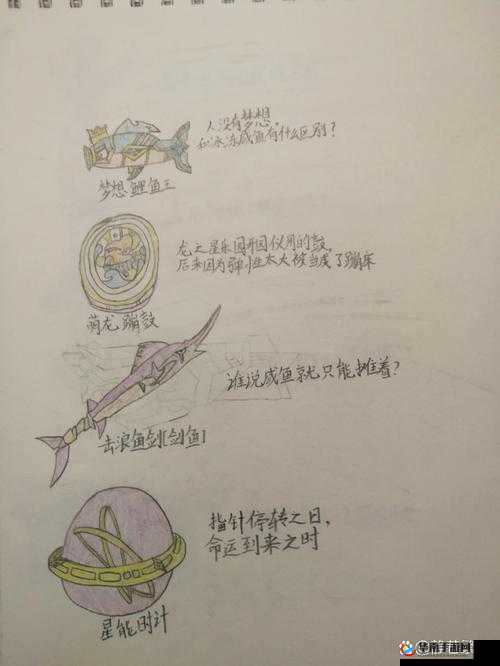 人没有梦想,
和冰冻咸鱼有什么区别?
梦想鲤鱼王
龙之星乐园开园仪用的鼓,
后来因为弹性太大被当成了蹦床
萌龙蹦鼓
谁说咸鱼就只能摊着?
击浪鱼剑[剑鱼]
指针停转之日,
命运到来之时
星能时计
华南手游网